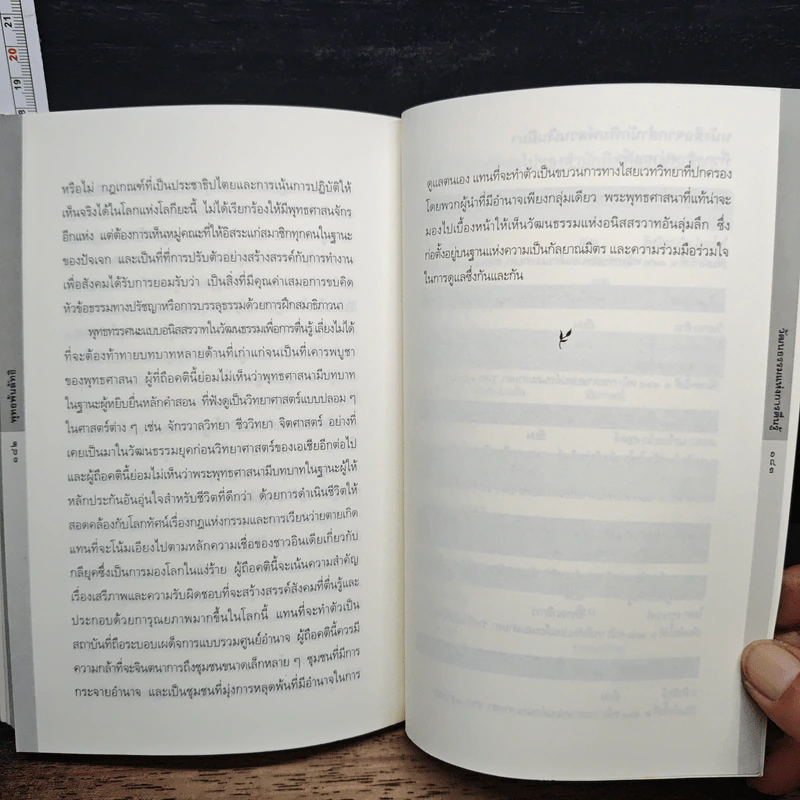 หรือไม่ กฎเกณฑ์ที่เป็นประชาธิปไตยและการเน้นการปฏิบัติให้
เห็นจริงได้ในโลกแห่งโลกียะนี้ ไม่ได้เรียกร้องให้มีพุทธศาสนจักร
อีกแห่ง แต่ต้องการเห็นหมู่คณะที่ให้อิสระแก่สมาชิกทุกคนในฐานะ
ของปัจเจก และเป็นที่ที่การปรับตัวอย่างสร้างสรรค์กับการทำงาน
เพื่อสังคมได้รับการยอมรับว่า เป็นสิ่งที่มีคุณค่าเสมอการขบคิด
หัวข้อธรรมทางปรัชญาหรือการบรรลุธรรมด้วยการฝึกสมาธิภาวนา
พุทธทรรศนะแบบอนิสสรวาทในวัฒนธรรมเพื่อการตื่นรู้ เลี่ยงไม่ได้
ที่จะต้องท้าทายบทบาทหลายด้านที่เก่าแก่จนเป็นที่เคารพบูชา
ของพุทธศาสนา ผู้ที่ถือคตินี้ย่อมไม่เห็นว่าพุทธศาสนามีบทบาท
ในฐานะผู้หยิบยื่นหลักคำสอน ที่ฟังดูเป็นวิทยาศาสตร์แบบปลอม ๆ
ในศาสตร์ต่าง ๆ เช่น จักรวาลวิทยา ชีววิทยา จิตศาสตร์ อย่างที่
เคยเป็นมาในวัฒนธรรมยุคก่อนวิทยาศาสตร์ของเอเชียอีกต่อไป
และผู้ถือคตินี้ย่อมไม่เห็นว่าพระพุทธศาสนามีบทบาทในฐานะผู้ให้
หลักประกันอันอุ่นใจสำหรับชีวิตที่ดีกว่า ด้วยการดำเนินชีวิตให้
สอดคล้องกับโลกทัศน์เรื่องกฎแห่งกรรมและการเวียนว่ายตายเกิด
แทนที่จะโน้มเอียงไปตามหลักความเชื่อของชาวอินเดียเกี่ยวกับ
กลียุคซึ่งเป็นการมองโลกในแง่ร้าย ผู้ถือคตินี้จะเน้นความสำคัญ
เรื่องเสรีภาพและความรับผิดชอบที่จะสร้างสรรค์สังคมที่ตื่นรู้และ
ประกอบด้วยการุณยภาพมากขึ้นในโลกนี้ แทนที่จะทำตัวเป็น
สถาบันที่ถือระบอบเผด็จการแบบรวมศูนย์อำนาจ ผู้ถือคตินี้ควรมี
ความกล้าที่จะจินตนาการถึงชุมชนขนาดเล็กหลาย ๆ ชุมชนที่มีการ
กระจายอำนาจ และเป็นชุมชนที่มุ่งการหลุดพ้นที่มีอำนาจในการ
พุทธพันลัทธิ
๑๘๒
ดูแลตนเอง แทนที่จะทำตัวเป็นขบวนการทางไสยเวทวิทยาที่ปกครอง
โดยพวกผู้นำที่มีอำนาจเพียงกลุ่มเดียว พระพุทธศาสนาที่แท้น่าจะ
มองไปเบื้องหน้าให้เห็นวัฒนธรรมแห่งอนิสสรวาทอันลุ่มลึก ซึ่ง
ก่อตั้งอยู่บนฐานแห่งความเป็นกัลยาณมิตร และความร่วมมือร่วมใจ
ในการดูแลซึ่งกันและกัน
วัฒนธรรมแห่งการตื่นรู้
๑๘๓
21
20
19
18